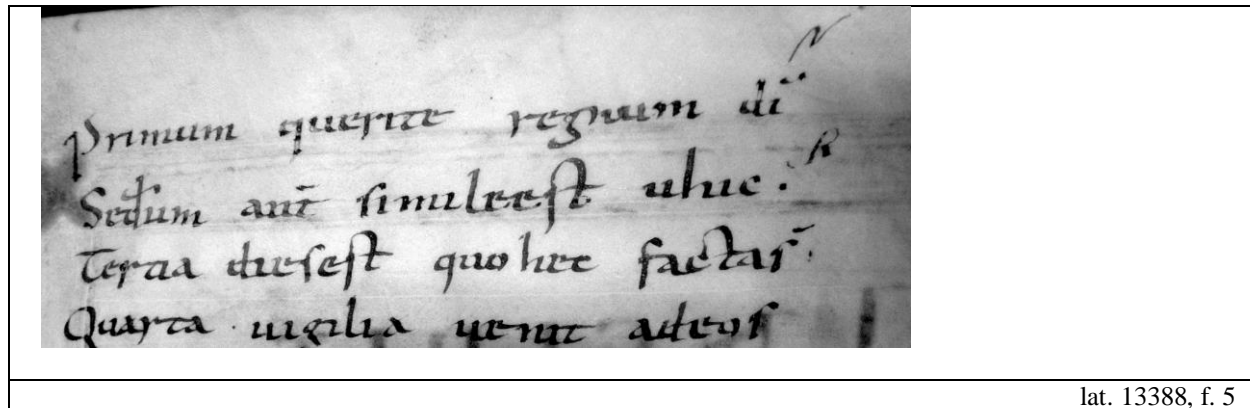 Primum querite regnum dī
Secdum aut̄ simileest uhuc.
Tertia diesest quo hec facta s̄.
Quarta uigilia uenit adeos
lat. 13388, f. 5